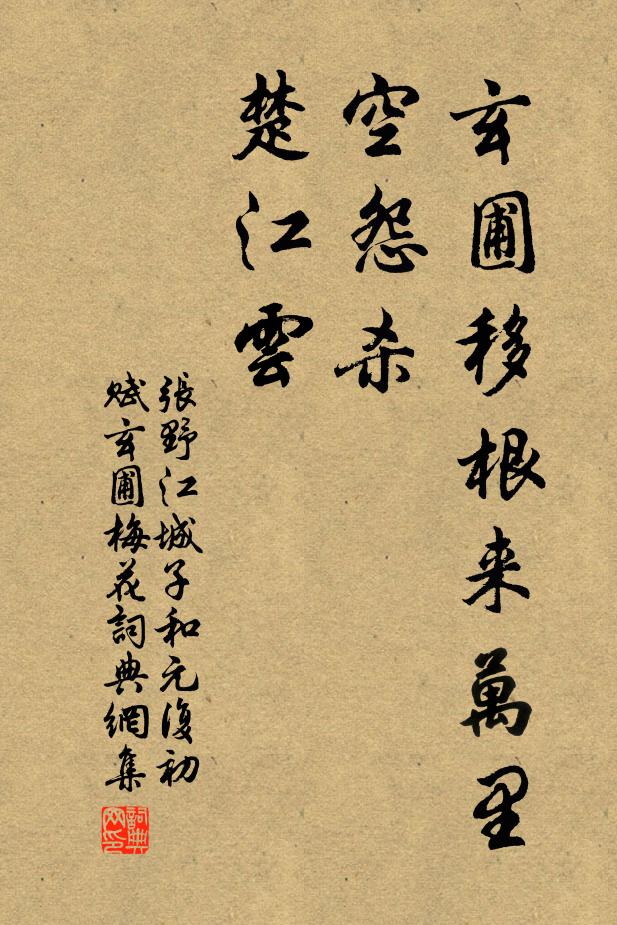 玄圃移根来萬里
空怨杀
楚江雲
張野江城子和元復初
賦玄圃梅花詞典網集
詞典
网印